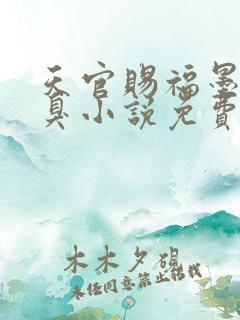 天官赐福墨
真小说免费
木木夕砚
未经同意禁止转载